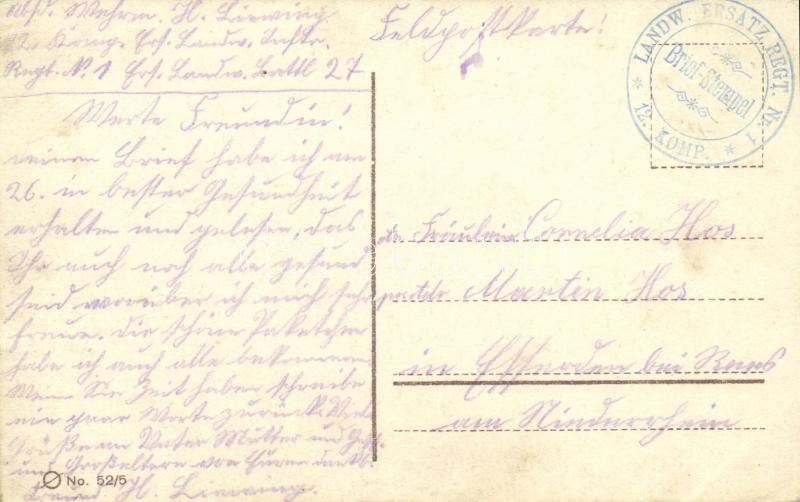 Absd. Wehrm. H. Liewing
12. Komp. Ers. Landw. Inftr.
Regt. N. 1 Ers. Landw. Battl 27
Feldpostkarte!
LANDW. ERSATZ REGT. Nr. 1
Brief-Stempel
* 12. KOMP. *
Werte Freundin!
deinen Brief habe ich am
26. in bester Gesundheit
erhalten und gelesen, das
Ihr auch noch alle gesund
seid worüber ich mich sehr
freue. Die schöne Paketchen
habe ich auch alle bekommen
Wenn Sie Zeit haben schreibe
ein paar Worte zurück. Viele
Grüße an Vater Mutter und
und Großeltern von Euren
Freund H. Liewing.
Fräulein Cornelia Hos
Martin Hos
in Esserden bei Rees
am Niederrhein
No. 52/5